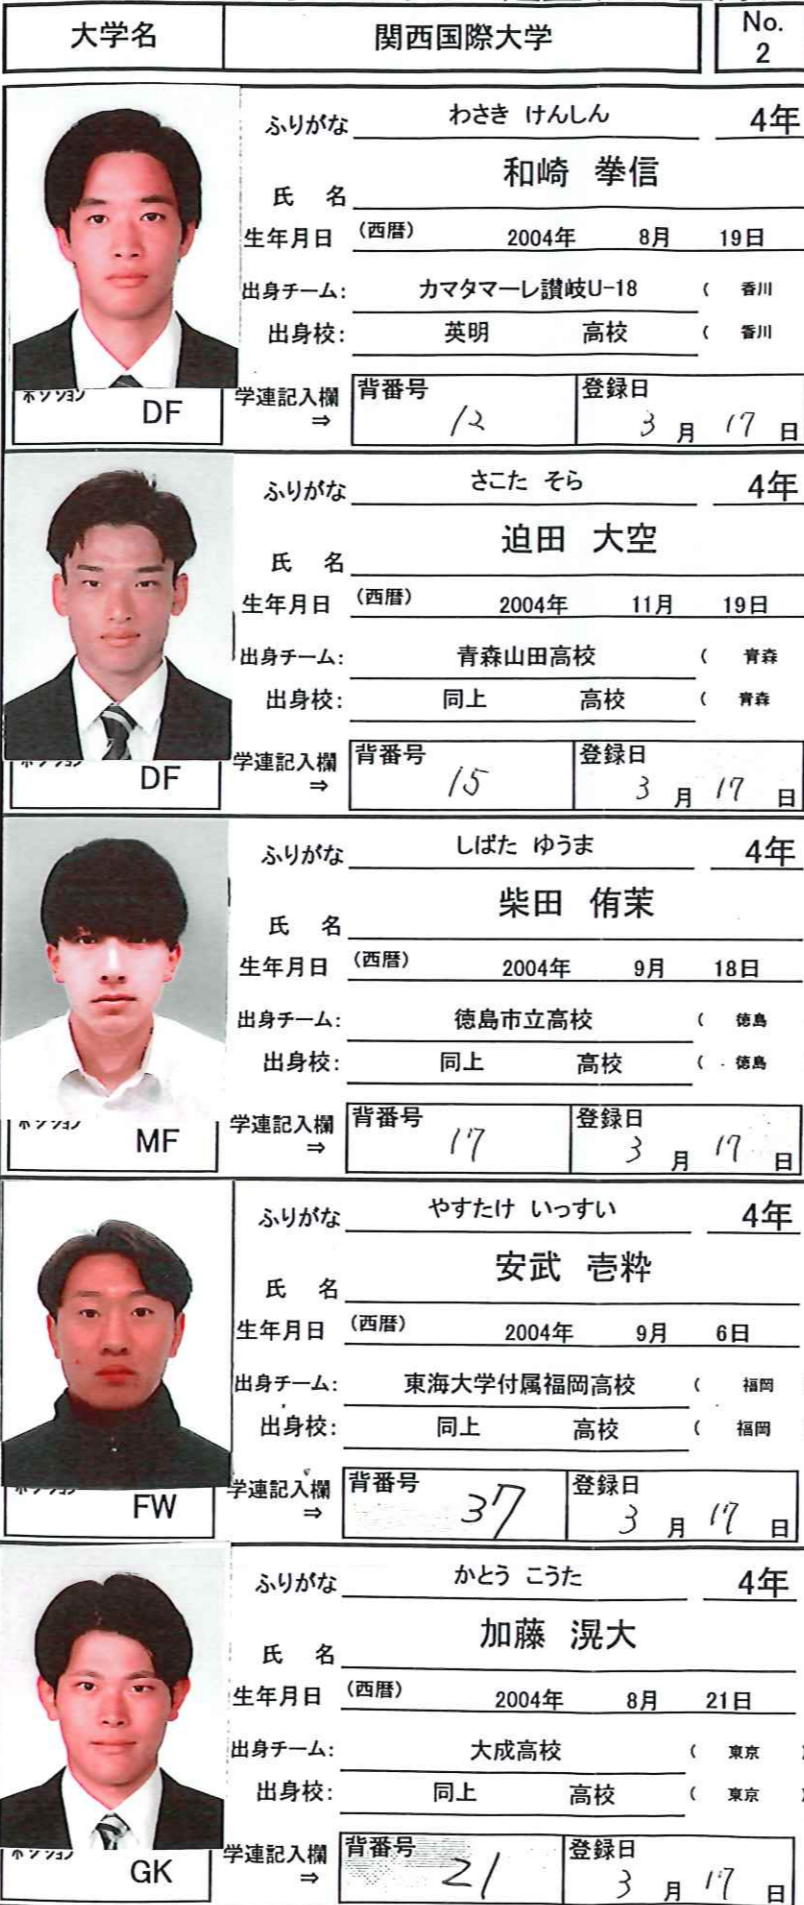 大学名 関西国際大学 No. 2
ふりがな わさき けんしん 4年
氏 名 和崎 拳信
生年月日 (西暦) 2004年 8月 19日
出身チーム: カマタマーレ讃岐U-18 ( 香川
出身校: 英明 高校 ( 香川
ポジション DF 学連記入欄 ⇒ 背番号 12 登録日 3 月 17 日
ふりがな さこた そら 4年
氏 名 迫田 大空
生年月日 (西暦) 2004年 11月 19日
出身チーム: 青森山田高校 ( 青森
出身校: 同上 高校 ( 青森
DF 学連記入欄 ⇒ 背番号 15 登録日 3 月 17 日
ふりがな しばた ゆうま 4年
氏 名 柴田 侑茉
生年月日 (西暦) 2004年 9月 18日
出身チーム: 徳島市立高校 ( 徳島
出身校: 同上 高校 ( 徳島
ポジション MF 学連記入欄 ⇒ 背番号 17 登録日 3 月 17 日
ふりがな やすたけ いっすい 4年
氏 名 安武 壱粋
生年月日 (西暦) 2004年 9月 6日
出身チーム: 東海大学付属福岡高校 ( 福岡
出身校: 同上 高校 ( 福岡
FW 学連記入欄 ⇒ 背番号 37 登録日 3 月 17 日
ふりがな かとう こうた 4年
氏 名 加藤 滉大
生年月日 (西暦) 2004年 8月 21日
出身チーム: 大成高校 ( 東京 )
出身校: 同上 高校 ( 東京 )
ポジション GK 学連記入欄 ⇒ 背番号 21 登録日 3 月 17 日